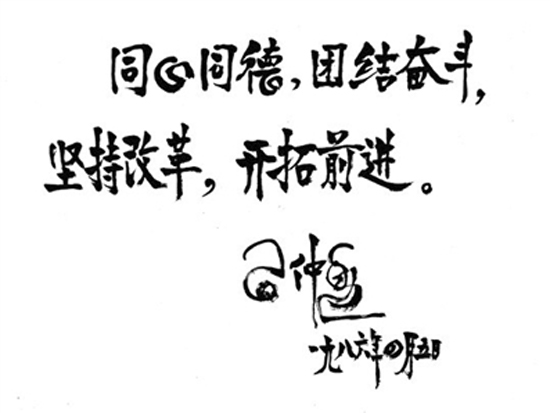 同心同德,团结奋斗,
坚持改革,开拓前进。
仲
一九八六年四月五日